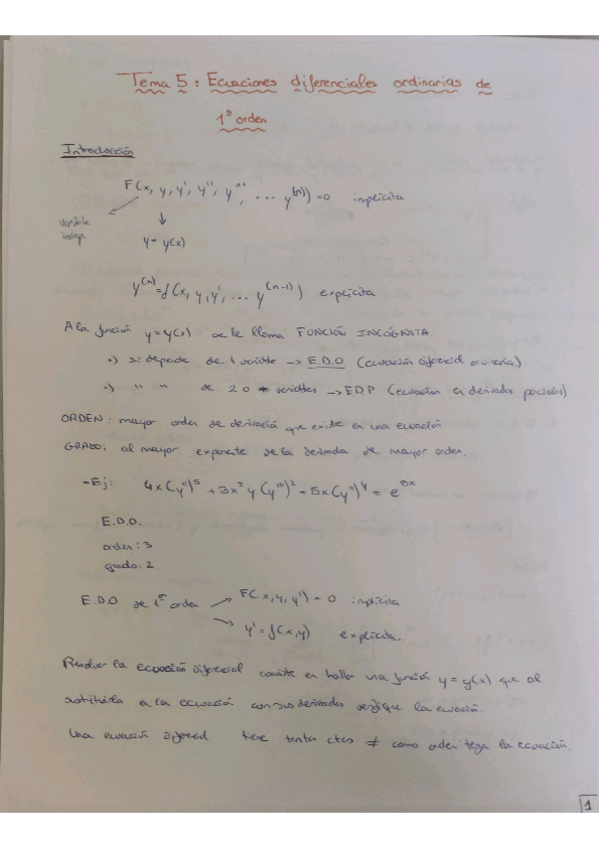 Tema 5: Ecuaciones diferenciales ordinarias de
1er orden
Introducción
F(x, y, y', y'', y''', ... y^(n)) = 0 implícita
Variable
indep.
y = y(x)
y^(n) = f(x, y, y', ... y^(n-1)) explícita
A la función y = y(x) se le llama FUNCIÓN INCÓGNITA.
•) si depende de 1 variable → E.D.O (ecuación diferencial ordinaria)
•) " " de 2 o + variables → EDP (ecuación en derivadas parciales)
ORDEN: mayor orden de derivación que existe en una ecuación
GRADO: al mayor exponente de la derivada de mayor orden.
- Ej: 4x(y')^5 + 3x^2 y (y''')^2 + 5x(y'')^4 = e^8x
E.D.O.
orden: 3
grado: 2
E.D.O de 1er orden → F(x, y, y') = 0 implícita
→ y' = f(x, y) explícita.
Resolver la ecuación diferencial consiste en hallar una función y = y(x) que al
sustituirla a la ecuación con sus derivadas verifique la ecuación.
Una ecuación diferencial tiene tantas ctes ≠ como orden tenga la ecuación.
1